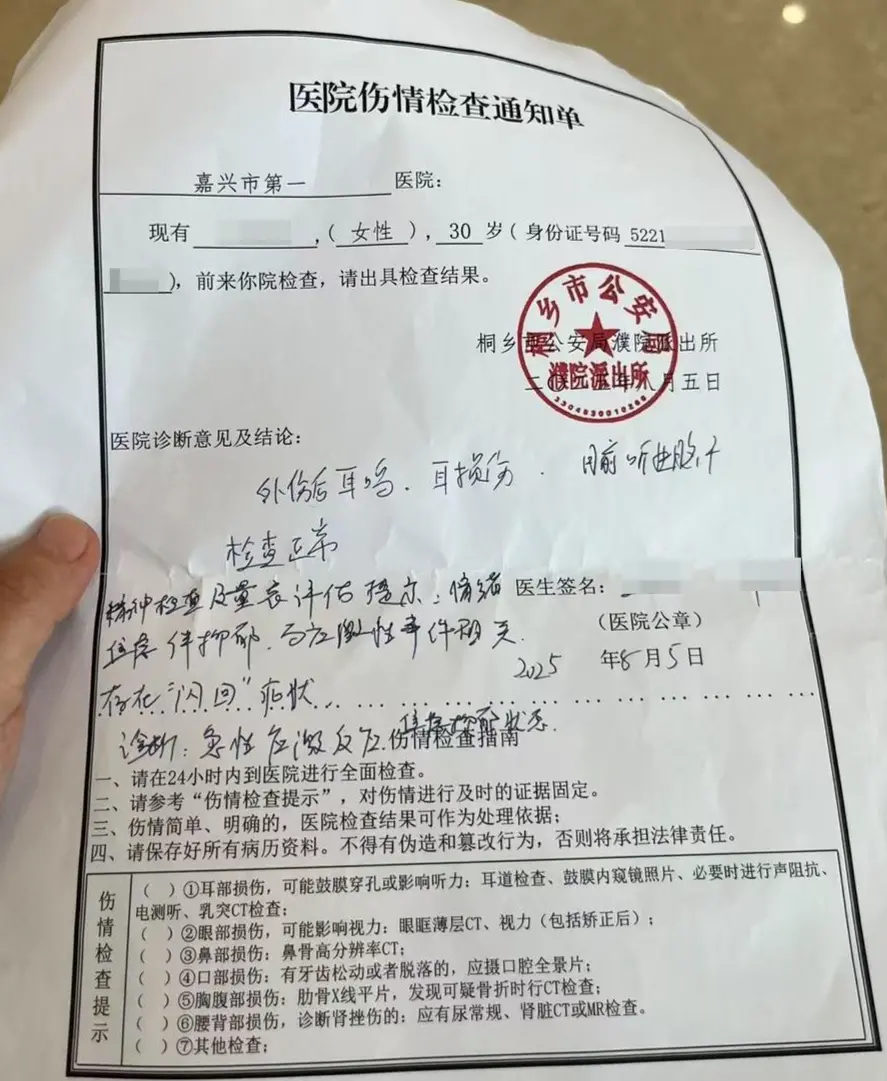 医院伤情检查通知单
嘉兴市第一 医院:
现有 ,( 女性 ), 30 岁( 身份证号码 5221
),前来你院检查,请出具检查结果。
桐乡市公安局
桐乡市公安局濮院派出所
濮院派出所
二〇二五年八月五日
医院诊断意见及结论:
外伤后耳鸣、耳损伤、目前听
检查正常
精神检查及量表评估提示:情绪 医生签名:
伴抑郁,与应激性事件相关. (医院公章)
2025 年8月5日
存在“闪回”症状
诊断:急性应激反应. 抑郁状态.
伤情检查指南
一、请在24小时内到医院进行全面检查。
二、请参考“伤情检查提示”,对伤情进行及时的证据固定。
三、伤情简单、明确的,医院检查结果可作为处理依据;
四、请保存好所有病历资料。不得有伪造和篡改行为,否则将承担法律责任。
伤情检查提示
( )①耳部损伤,可能鼓膜穿孔或影响听力:耳道检查、鼓膜内窥镜照片、必要时进行声阻抗、
电测听、乳突CT检查;
( )②眼部损伤,可能影响视力:眼眶薄层CT、视力(包括矫正后);
( )③鼻部损伤:鼻骨高分辨率CT;
( )④口部损伤:有牙齿松动或者脱落的,应摄口腔全景片;
( )⑤胸腹部损伤:肋骨X线平片,发现可疑骨折时行CT检查;
( )⑥腰背部损伤,诊断肾挫伤的:应有尿常规、肾脏CT或MR检查。
( )⑦其他检查;